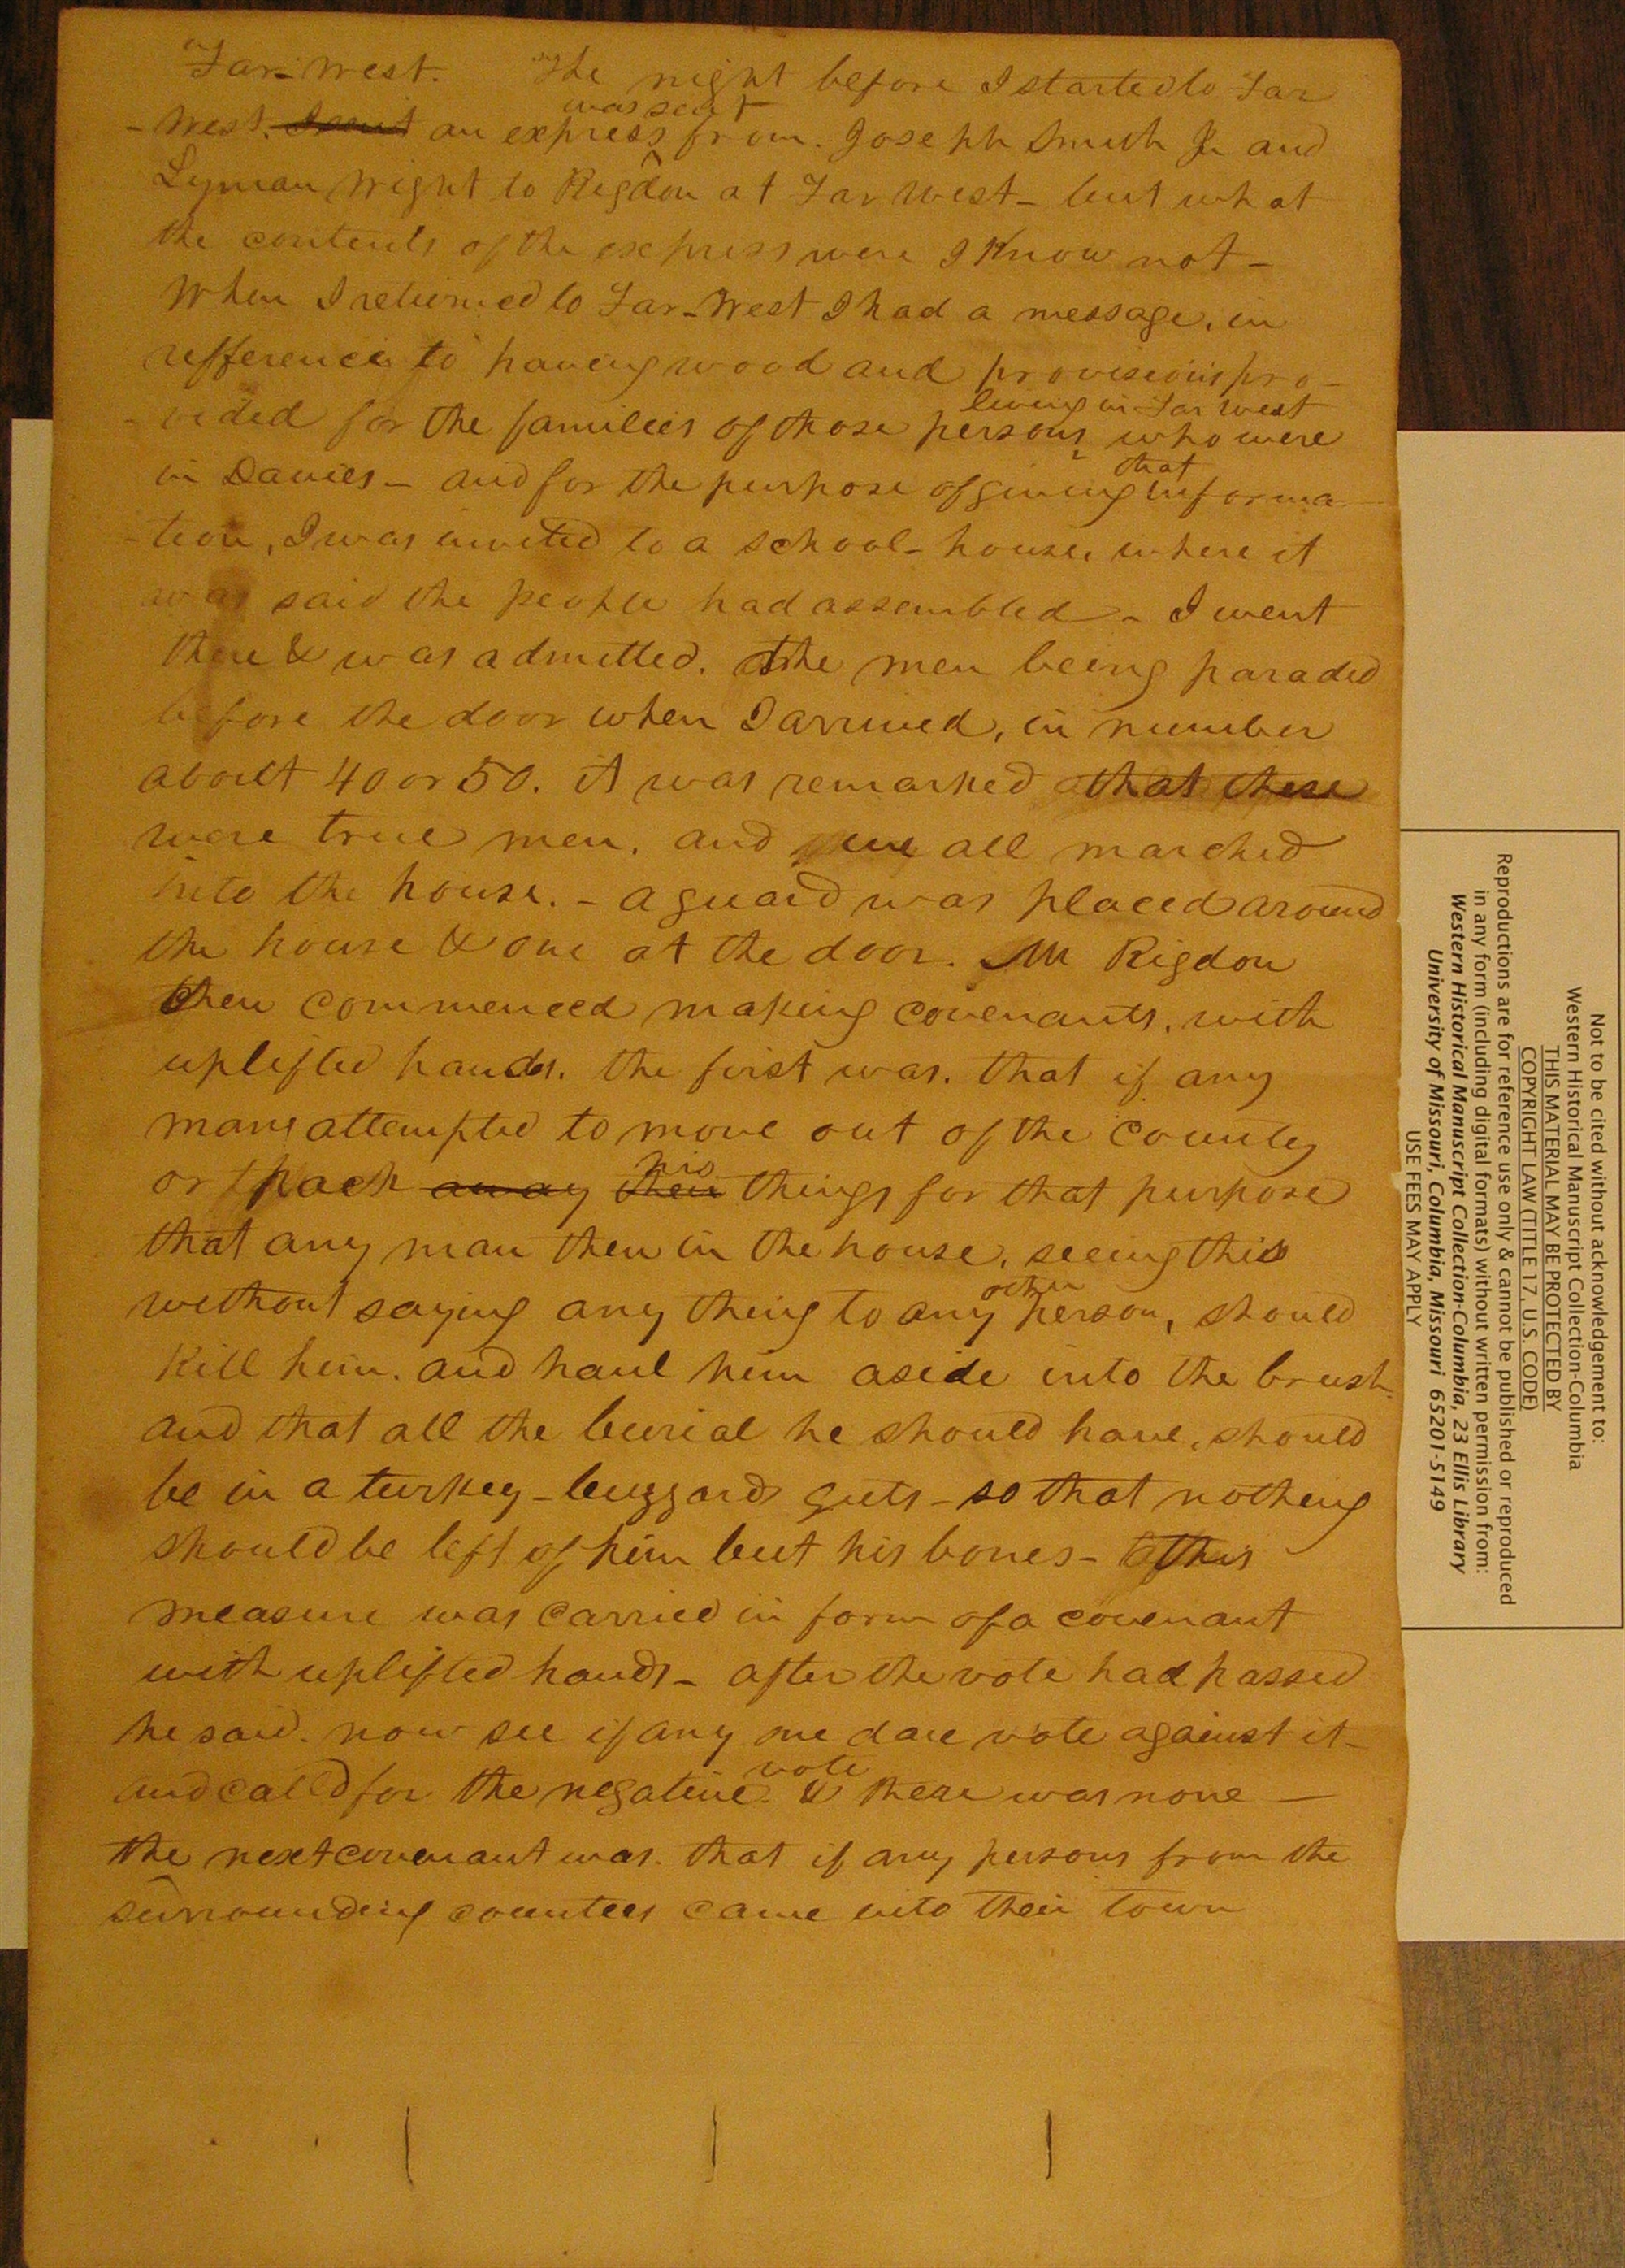 Far-West. The night before I started to Far
-West. I sent an express was sent from. Joseph Smith Jr and
Lyman Wight to Rigdon at Far West- but what
the contents of the express were I Know not-
When I returned to Far-West I had a message, in
refference to having wood and provisions pro-
-vided for the families of those persons living in Far West who were
in Davies- and for the purpose of giving that informa
-tion, I was invited to a school-house, where it
was said the people had assembled- I went
there & was admitted. The men being paraded
before the door when I arrived, in number
about 40 or 50. it was remarked that these
were true men. and we all marched
into the house. - a guard was placed around
the house & one at the door. Mr Rigdon
then commenced making covenants, with
uplifted hands. the first was. that if any
man attempted to move out of the county
or pack away their his things for that purpose
that any man then in the house, seeing this
without saying any thing to any other person, should
Kill him. and haul him aside into the brush
and that all the burial he should have, should
be in a turkey-buzzards guts- so that nothing
should be left of him but his bones- this
measure was carried in form of a covenant
with uplifted hands- after the vote had passed
he said. now see if any one dare vote against it-
and called for the negative vote & there was none -
the next covenant was. that if any persons from the
surrounding counties came into their town
Not to be cited without acknowledgement to:
Western Historical Manuscript Collection-Columbia
THIS MATERIAL MAY BE PROTECTED BY
COPYRIGHT LAW (TITLE 17, U.S. CODE)
Reproductions are for reference use only & cannot be published or reproduced
in any form (including digital formats) without written permission from:
Western Historical Manuscript Collection-Columbia, 23 Ellis Library
University of Missouri, Columbia, Missouri 65201-5149
USE FEES MAY APPLY